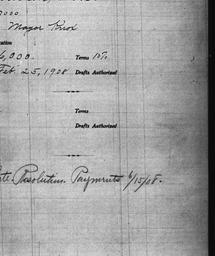 000
Mayor Knox
6,000. Terms 10%
Feb 25, 1908 Drafts Authorized
Terms
Drafts Authorized
Resolution. Payments 6/15/08.